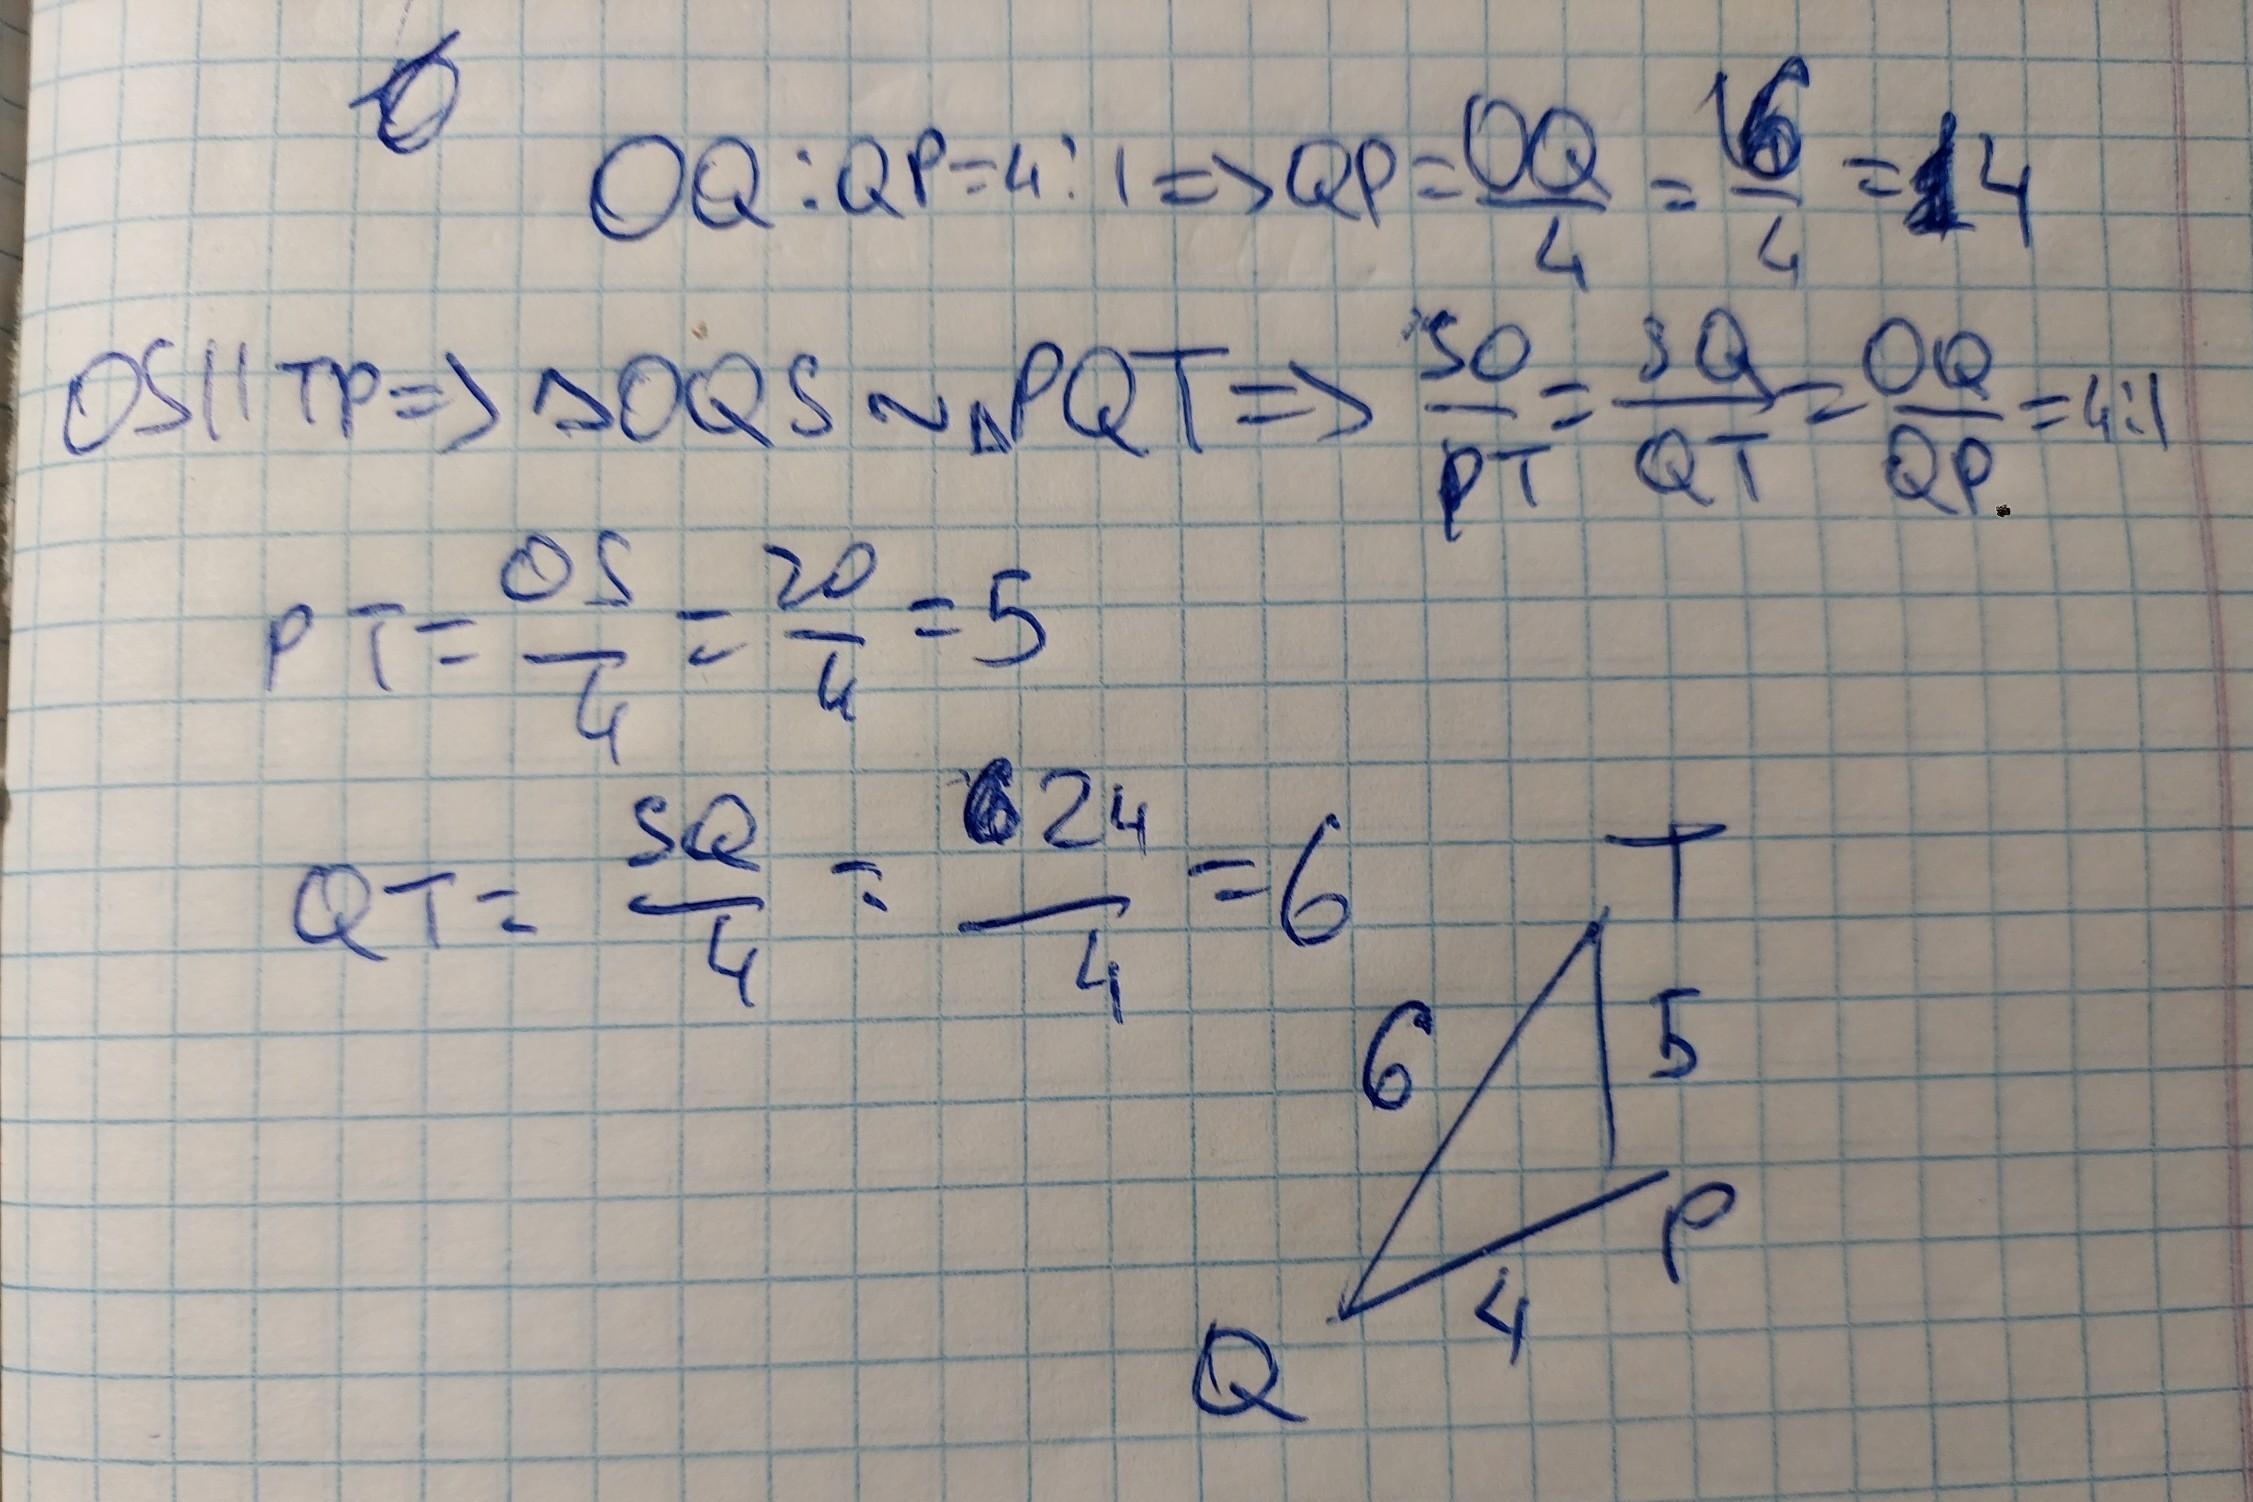 б
OQ:QP=4:1=>QP=OQ/4=16/4=4
OS||TP=>△OQS~△PQT=>SO/PT=SQ/QT=OQ/QP=4:1
PT=OS/4=20/4=5
QT=SQ/4=24/4=6
T
6 5
P
4
Q